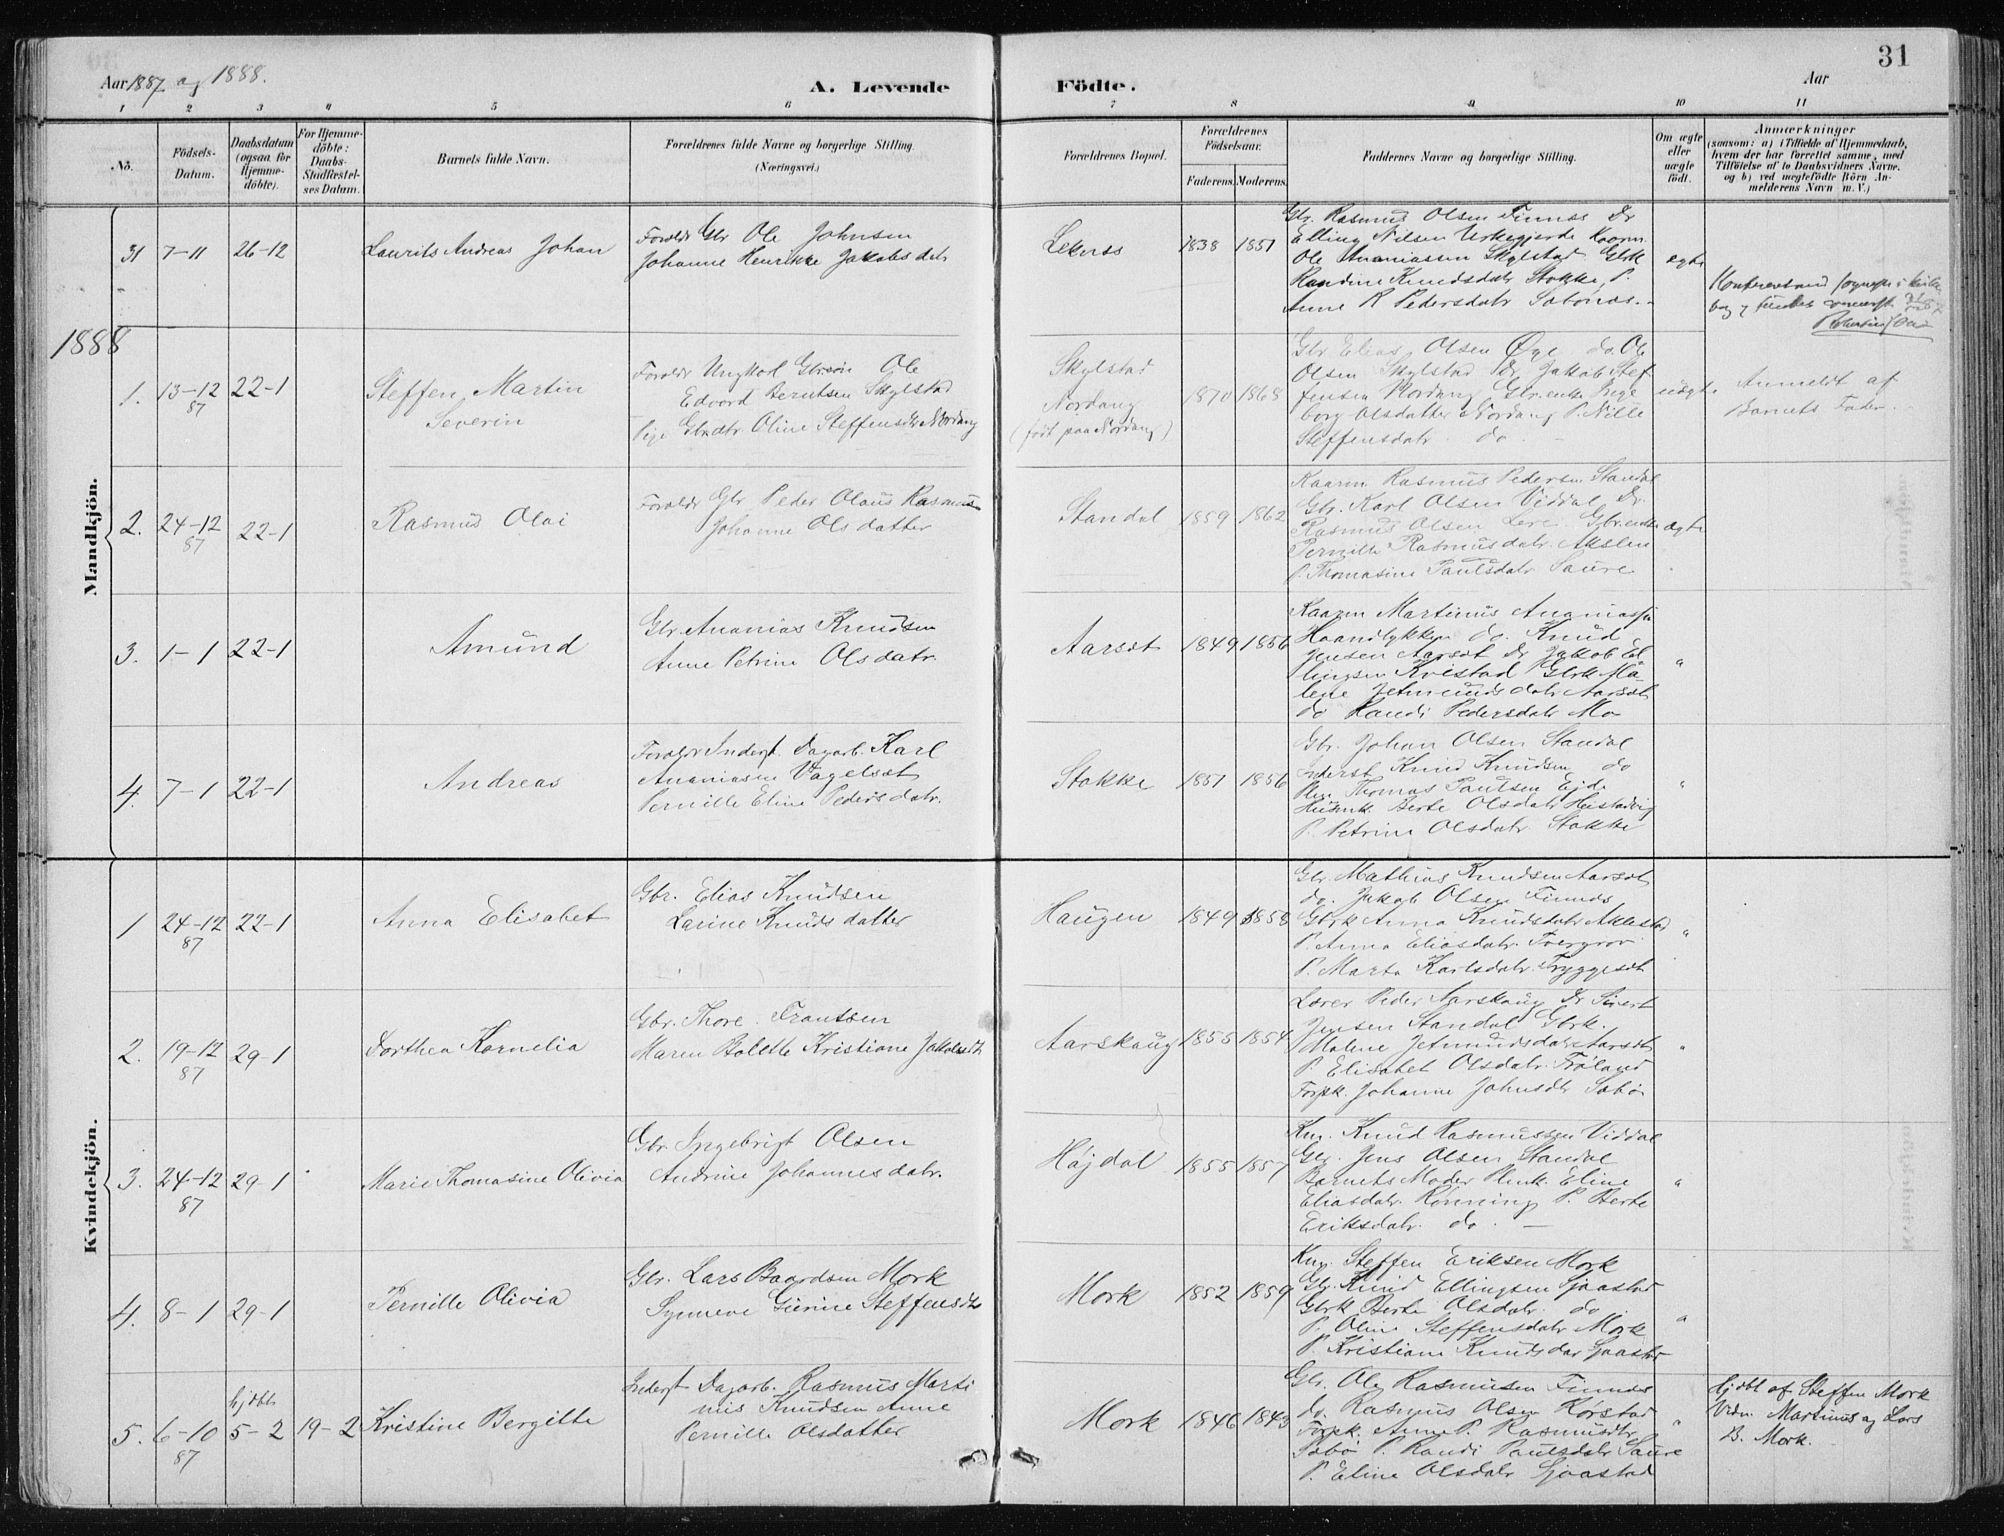 Aar 1887 og 1888.
A. Levende
Födte.
Aar
31
1 2 3 4 5 6 7 8 9 10 11
No.
Födsels-
Datum.
Daabsdatum
(ogsaa for
Hjemme-
döbte).
For Hjemme-
döbte:
Daabs-
Stadfæstel-
ses Datum.
Barnets fulde Navn.
Forældrenes fulde Navne og borgerlige Stilling.
(Næringsvei.)
Forældrenes Bopæl.
Forældrenes
Födselsaar.
Faderens. Moderens.
Faddernes Navne og borgerlige Stilling.
Om ægte
eller
uægte
födt.
Anmærkninger
(saasom: a) i Tilfælde af Hjemmedaab,
hvem der har forrettet samme, med
Tilföielse af to Daabsvidners Navne.
og b) ved uægtefödte Börn An-
melderens Navn m. V.)
Mandkjön.
31 7-11 26-12
Laurits Andreas Johan
Foraldr Gbr Ole Johnsen
Johanne Henrikke Jakobsdatr
Leknes
1838 1851
Gbr. Rasmus Olsen Finnes Dr
Elling Nilsen Urkegjerde Kaarm.
Ole Ananiassen Skylstad Gbrk
Randine Knudsdatr Stokke, P.
Anne R Pedersdatr Sæbønes.
ægte
1888
1. 13-12 87 22-1
Steffen Martin
Severin
Foraldr Ungkarl Gbrsøn Ole
Edvard Berntsen Skylstad
Pige Gbrdtr. Oline Steffensdtr Nordang
Skylstad
Nordang
(født paa Nordang)
1870 1868
Gbr. Elias Olsen Øye do. Ole
Olsen Skylstad Dr Jakob Stef
fensen Nordang Gbr.enke Inge
borg Olsdatter Nordang P. Nille
Steffensdatr. do.
uægte
Anmeldt af
Barnets Fader.
2. 24-12 87 22-1
Rasmus Olai
Foraldr Gbr Peder Olaus Rasmus
Johanne Olsdatter
Standal
1859 1862
Kaarm Rasmus Pedersen Standal
Gbr. Karl Olsen Viddal Dr.
Rasmus Olsen Gbr.enke
Pernille Rasmusdatr. Akslen
P. Thomasine Paulsdatr Saure
ægte
3. 1-1 22-1
Amund
Gbr. Ananias Knudsen
Anne Petrine Olsdatr.
Aarsæt
1849 1856
Kaarm Martinus Ananiass
do. Knud
Jensen Aarsæt Dr Jakob El
lingsen Kvistad Gbrk Ma-
lene Jetmundsdatr Aarsæt
do Randi Pedersdatr Mo
"
4. 7-1 22-1
Andreas
Foraldr Inderst. Dagarb. Karl
Ananiasen Vagelsæt
Pernille Eline Pedersdatr.
Stokke
1851 1856
Gbr. Johan Olsen Standal
Inderst Knud Knudsen do
Thomas Paulsen Eide
Berte Olsdatr
P. Petrine Olsdatr Stokke
"
Kvindekjön.
1 24-12 87 22-1
Anna Elisabet
Gbr. Elias Knudsen
Larine Knudsdatter
Haugen
1849 1858
Gbr Mathias Knudsen Aarsæt
do. Jakob Olsen Finnes
Gbrk Anna Knudsdatr Aklestad
P. Anna Eliasdatr.
P. Marta Karlsdatr Tryggesæt
"
2. 19-12 87 29-1
Dorthea Kornelia
Gbr. Thore Frantsen
Maren Bolette Kristiane Jakobsdt
Aarskaug
1855 1854
Lærer Peder Aarskaug Dr Sivert
Jensen Standal Gbrk.
Malene Jetmundsdatr Aarsæt
P. Elisabet Olsdatr. Frøland
Johanne Johnsdtr Sæbø
"
3. 24-12 87 29-1
Marie Thomasine Olivia
Gbr Ingebrigt Olsen
Andrine Johannesdatr.
Højdal
1855 1857
Knud Rasmussen Viddal
Gbr. Jens Olsen Standal
Barnets Moder Eline
Eliasdatr. Rønning P. Berte
Eriksdatr. do.
"
4. 8-1 29-1
Pernille Olivia
Gbr. Lars Baardsen Mork
Synneve Gurine Steffensdtr
Mork
1852 1859
Steffen Eriksen Mork
Gbr. Knud Ellingsen Sjaastad
Gbrk Berte Olsdatr. do
P. Oline Steffensdatr Mork
P. Kristiane Knudsdtr Sjaastad
"
5. 6-10 87 hjdbt 5-2 19-2
Kristine Bergitte
Inderst Dagarb. Rasmus Marti
nus Knudsen Anne
Pernille Olsdatter
Mork
1846 1843
Gbr. Ole Rasmusen Finnes
do. Rasmus Olsen Rørstad
Anne P. Rasmusdtr
Sæbø P. Randi Paulsdatr Saure
P. Eline Olsdatr Sjaastad
"
hjdbt af Steffen Mork
Vidn. Martinus og Lars
B. Mork.